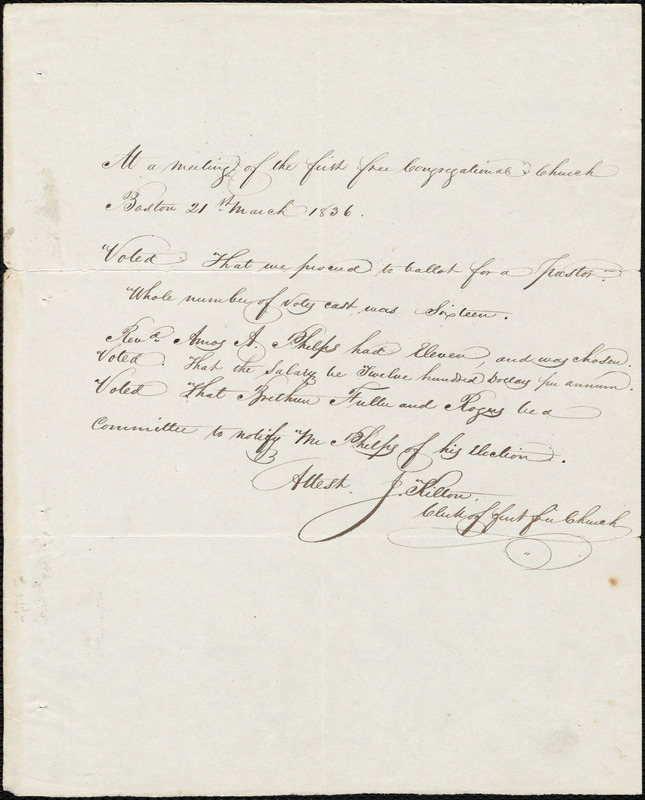 At a meeting of the first free Congregational Church
Boston 21st March 1836.
Voted That we proceed to ballot for a pastor.
Whole number of votes cast was Sixteen.
Revd. Amos A. Phelps had Eleven, and was chosen.
Voted. That the Salary be Twelve hundred Dollars per annum.
Voted That Brethren Fuller and Rogers be a
Committee to notify Mr Phelps of his Election.
Attest. J. Kilton.
Clerk of first free Church